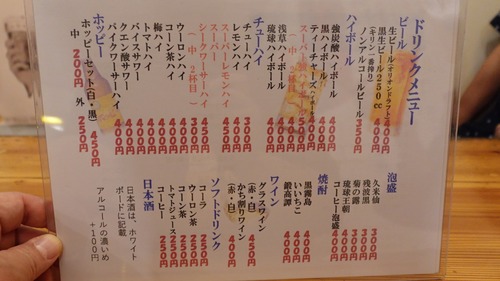 ドリンクメニュー
ビール
生ビール(オリオンドラフト) 400円
(キリン一番搾り) 400円
黒生ビール250cc
ノンアルコールビール 350円
ハイボール
強炭酸ハイボール 400円
黒ハイボール
ティーチャーズハイボール
スーパー
浅草ハイボール 400円
琉球ハイボール 400円
チューハイ
チューハイ 300円
レモンハイ
スーパーレモンハイ
スーパー
シークワーサーハイ 450円
(中 2杯目)
ウーロンハイ 400円
コーン茶ハイ 400円
梅ハイ 400円
トマトハイ 400円
バイスサワー 400円
クエン酸サワー 400円
シークワーサーハイ 400円
パインサワー 400円
ホッピー
ホッピーセット(白・黒) 450円
中 200円 外 250円
泡盛
久米仙 300円
残波黒 300円
菊の露 300円
琉球王朝 400円
コーヒー泡盛 400円
焼酎
黒霧島
いいちこ
鍛高譚 400円
ワイン
グラスワイン
(赤・白) 450円
かち割りワイン
(赤・白) 400円
ソフトドリンク
コーラ 250円
ウーロン茶 250円
コーン茶 250円
トマトジュース 250円
コーヒー 250円
日本酒
日本酒は、ホワイト
ボードに記載
アルコールの濃いめ
+100円